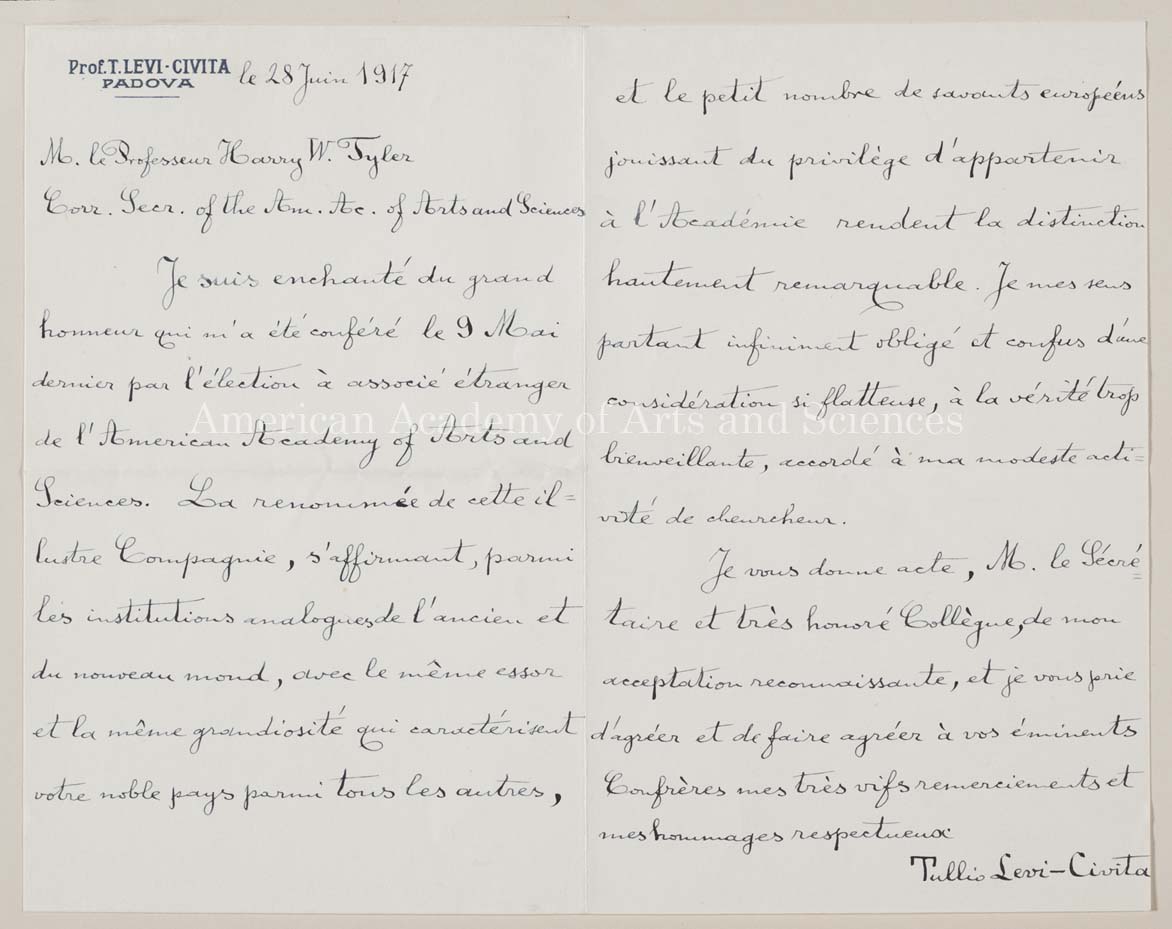 Prof. T. LEVI-CIVITA
PADOVA
le 28 Juin 1917
M. le Professeur Harry W. Tyler
Corr. Secr. of the Am. Ac. of Arts and Sciences
Je suis enchanté du grand
honneur qui m'a été conféré le 9 Mai
dernier par l'élection à associé étranger
de l'American Academy of Arts and
Sciences. La renommée de cette il=
lustre Compagnie, s'affirmant, parmi
les institutions analogues, de l'ancien et
du nouveau mond, avec le même essor
et la même grandiosité qui caractérisent
votre noble pays parmi tous les autres,
et le petit nombre de savants européens
jouissant du privilège d'appartenir
à l'Académie rendent la distinction
hautement remarquable. Je mes sens
partant infiniment obligé et confus d'une
considération si flatteuse, à la vérité trop
bienveillante, accordé à ma modeste acti=
vité de cheurcheur.
Je vous donne acte, M. le Sécré=
taire et très honoré Collègue, de mon
acceptation reconnaissante, et je vous prie
d'agréer et de faire agréer à vos éminents
Confrères mes très vifs remerciements et
mes hommages respectueux
Tullio Levi-Civita
American Academy of Arts and Sciences